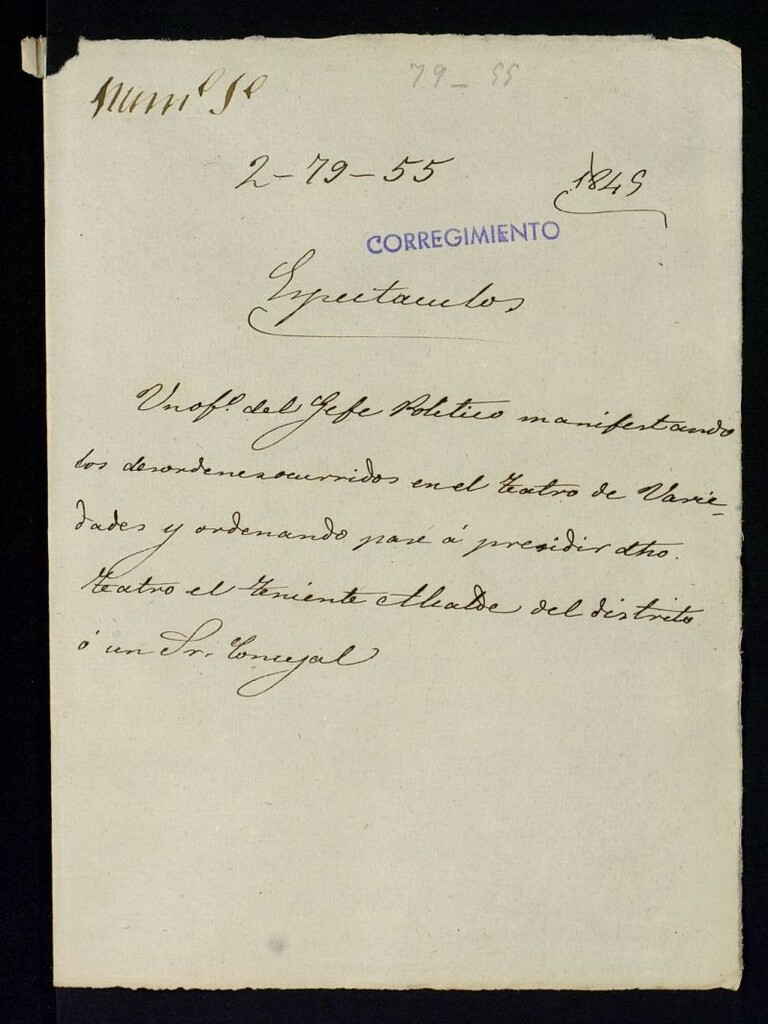 79 - 55
Num.º 1º
2 - 79 - 55
1849
CORREGIMIENTO
Espectaculos
Un of.º del Gefe Politico manifestando
los desordenes ocurridos en el teatro de Varie-
dades y ordenando pase á presidir dho.
teatro el teniente Alcalde del distrito
ó un Sr. Concejal